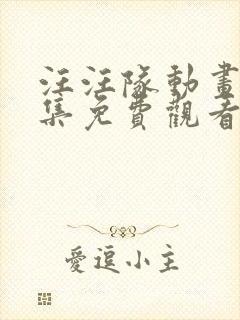 汪汪隊動畫
集免費觀看
愛逗小主